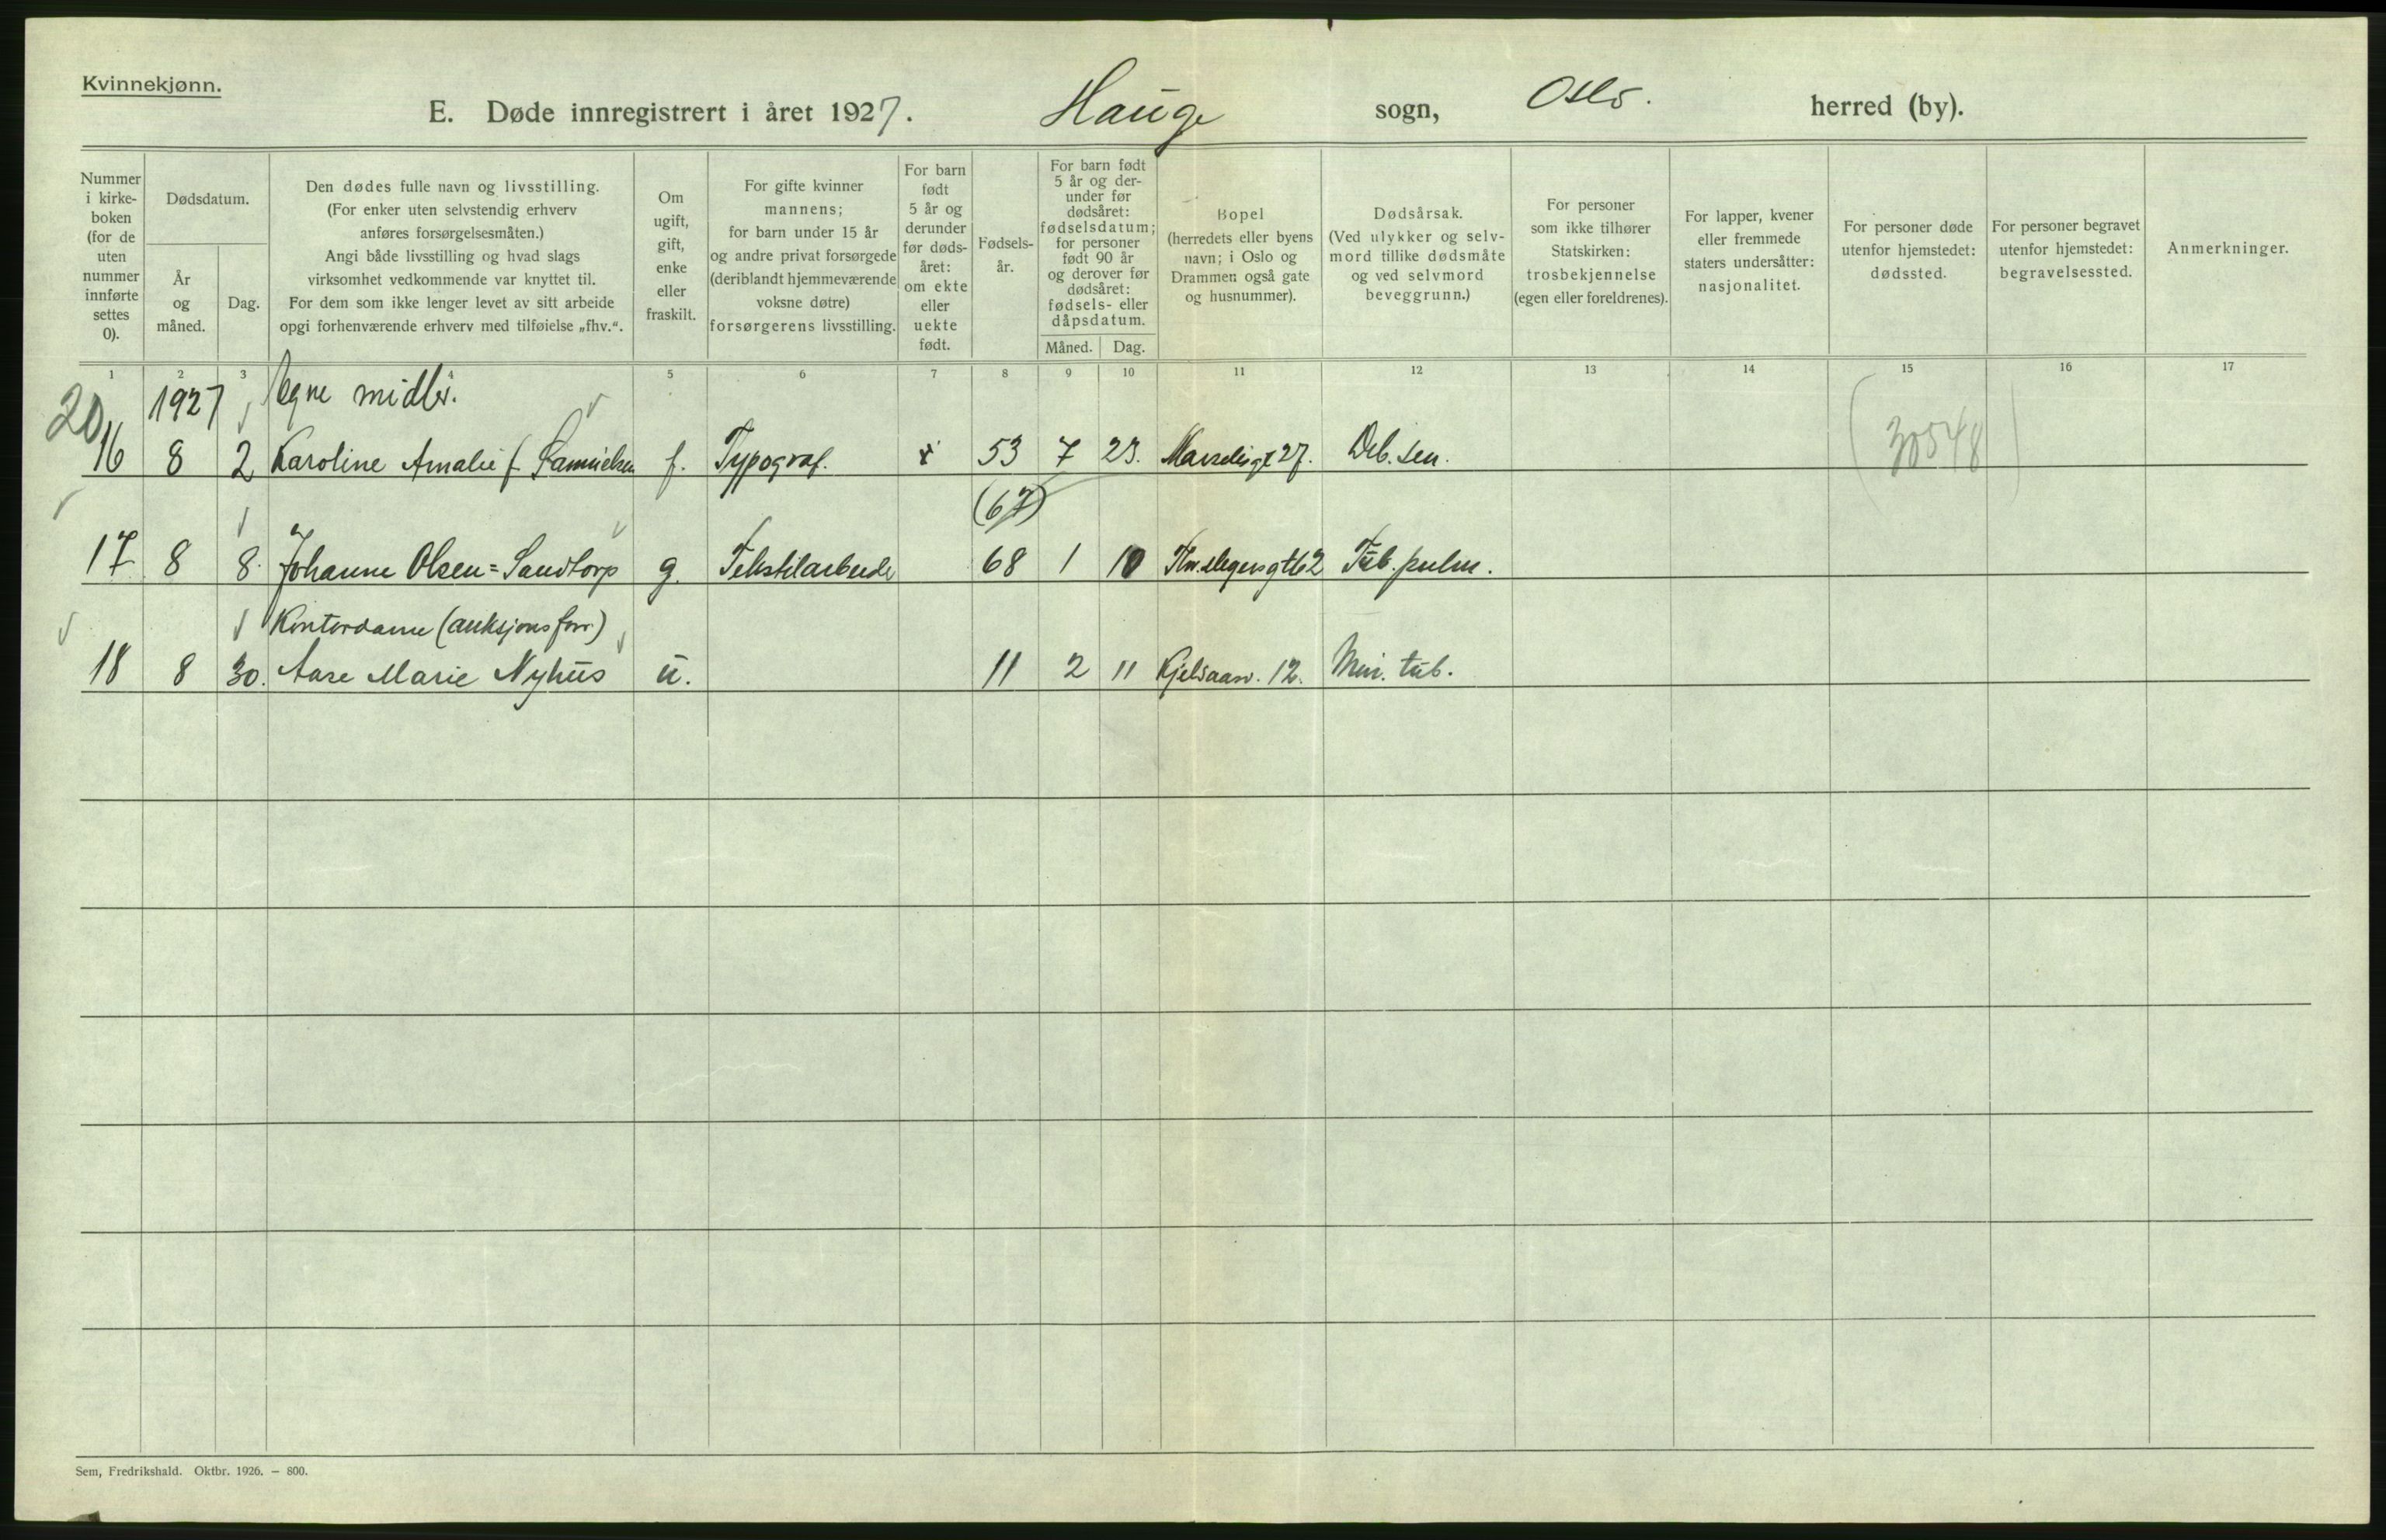 Kvinnekjønn.
E. Døde innregistrert i året 1927. Hauge sogn, Oslo. herred (by).
Nummer i kirke- boken (for de uten nummer innførte settes 0).
Dødsdatum.
År og måned.
Dag.
Den dødes fulle navn og livsstilling.
(For enker uten selvstendig erhverv
anføres forsørgelsesmåten.)
Angi både livsstilling og hvad slags
virksomhet vedkommende var knyttet til.
For dem som ikke lenger levet av sitt arbeide
opgi forhenværende erhverv med tilføielse „fhv.“.
Om ugift, gift, enke eller fraskilt.
For gifte kvinner
mannens;
for barn under 15 år
og andre privat forsørgede
(deriblandt hjemmeværende
voksne døtre)
forsørgerens livsstilling.
For barn født 5 år og derunder før døds- året: om ekte eller uekte født.
Fødsels- år.
For barn født 5 år og der- under før dødsåret: fødselsdatum; for personer født 90 år og derover før dødsåret: fødsels- eller dåpsdatum.
Måned. Dag.
Bopel
(herredets eller byens
navn; i Oslo og
Drammen også gate
og husnummer).
Dødsårsak.
(Ved ulykker og selv-
mord tillike dødsmåte
og ved selvmord
beveggrunn.)
For personer
som ikke tilhører
Statskirken:
trosbekjennelse
(egen eller foreldrenes).
For lapper, kvener
eller fremmede
staters undersåtter:
nasjonalitet.
For personer døde
utenfor hjemstedet:
dødssted.
For personer begravet
utenfor hjemstedet:
begravelsessted.
Anmerkninger.
1 2 3 4 5 6 7 8 9 10 11 12 13 14 15 16 17
20 1927 Egne midler.
16 8 2 Karoline Amalie f. Samuelsen f. Typograf. 53 7 23. 27. Deb. sen. (30548)
(67)
17 8 8. Johanne Olsen=Sandtorp g. Tekstilarbeide 68 1 10 Tub. pulm.
Kontordame (auksjonsforr.)
18 8 30. Aase Marie Nyhus u. 11 2 11 Kjelsaasv. 12. Min. tub.
Sem, Fredrikshald. Oktbr. 1926. — 800.